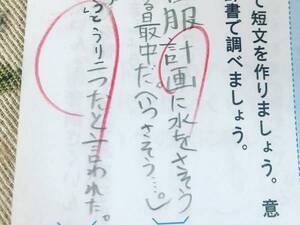 て短文を作りましょう。意
書で調べましょう。
服計画に水をさそう
る最中だ。(いつさそう…。)
うり二つだと言われた。